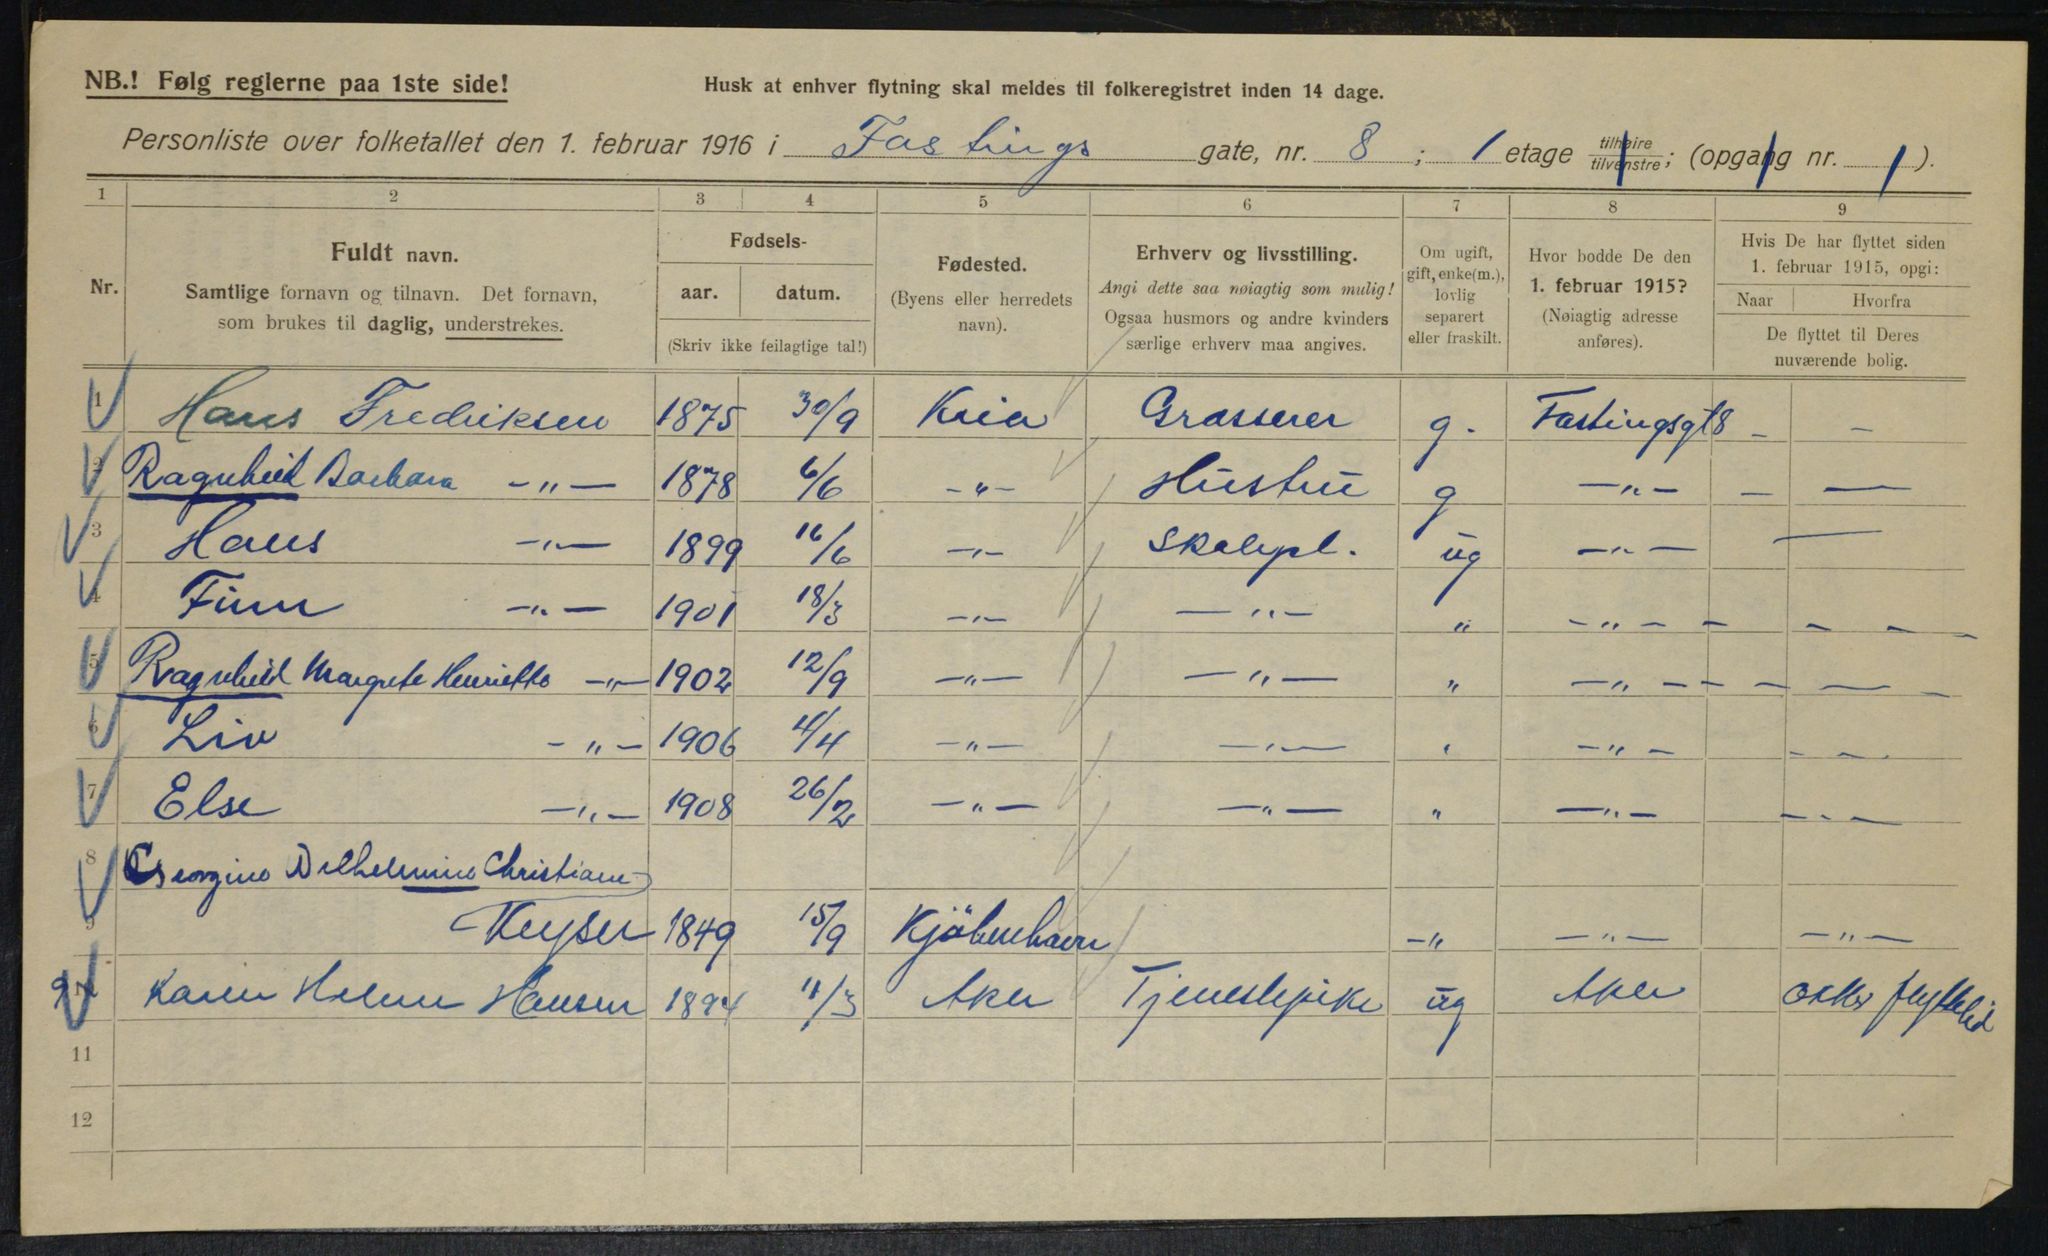 NB.! Følg reglerne paa 1ste side!
Husk at enhver flytning skal meldes til folkeregistret inden 14 dage.
Personliste over folketallet den 1. februar 1916 i Fastings gate, nr. 8 ; 1 etage tilhøire/tilvenstre; (opgang nr. 1 ).
1 2 3 4 5 6 7 8 9
Nr.
Fuldt navn.
Samtlige fornavn og tilnavn. Det fornavn,
som brukes til daglig, understrekes.
Fødsels-
aar. datum.
(Skriv ikke feilagtige tal!)
Fødested.
(Byens eller herredets
navn).
Erhverv og livsstilling.
Angi dette saa nøiagtig som mulig!
Ogsaa husmors og andre kvinders
særlige erhverv maa angives.
Om ugift,
gift, enke(m.),
lovlig
separert
eller fraskilt.
Hvor bodde De den
1. februar 1915?
(Nøiagtig adresse
anføres).
Hvis De har flyttet siden
1. februar 1915, opgi:
Naar Hvorfra
De flyttet til Deres
nuværende bolig.
1 Hans Fredriksen 1875 30/9 Kria Grosserer g. Fastingsgt 8 – –
2 Ragnhild Barbara —„— 1878 6/6 —„— Hustru g —„— — —
3 Hans —„— 1899 16/6 —„— Skolepl. ug —„— —
4 Finn —„— 1901 18/3 —„— —„— „ —„— – – – –
5 Ragnhild Margrete Henriette —„— 1902 12/9 —„— —„— „ —„— – – — –
6 Liv —„— 1906 4/4 —„— —„— „ —„— – – –
7 Else —„— 1908 26/2 —„— —„— „ —„— – – –
8 Georgine Vilhelmine Christiane
9 Keyser 1849 15/9 Kjöbenhavn –„ —„— —„—
9 Karen Helene Hansen 1894 11/3 Aker Tjenestepike ug Aker okttr flyttetid
11
12